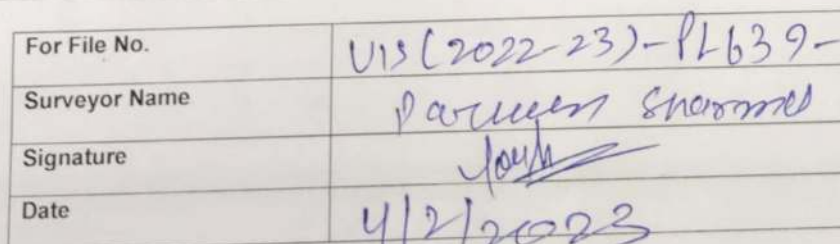 For File No. VIS(2022-23)-PL639-
Surveyor Name Parveen Sharma
Signature
Date 4/2/2023